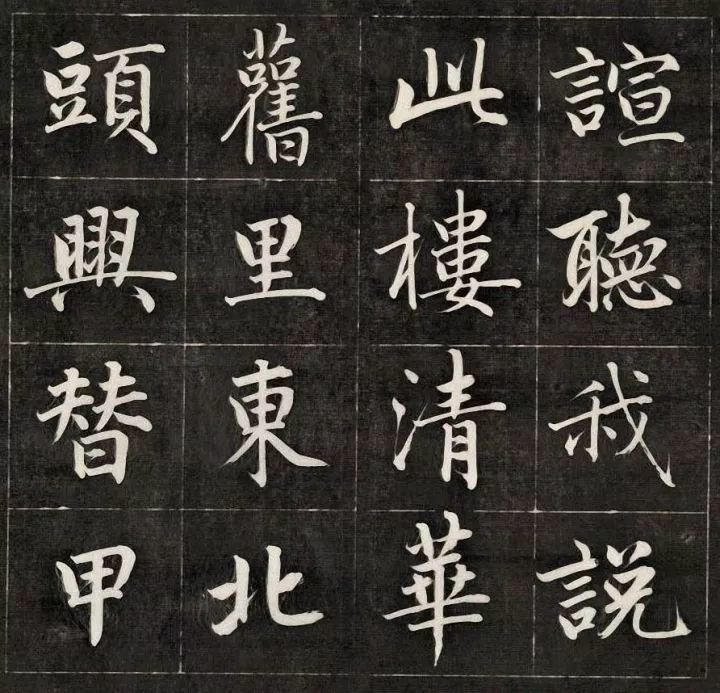 諠聽我説
此樓清華
舊里東北
頭興替甲